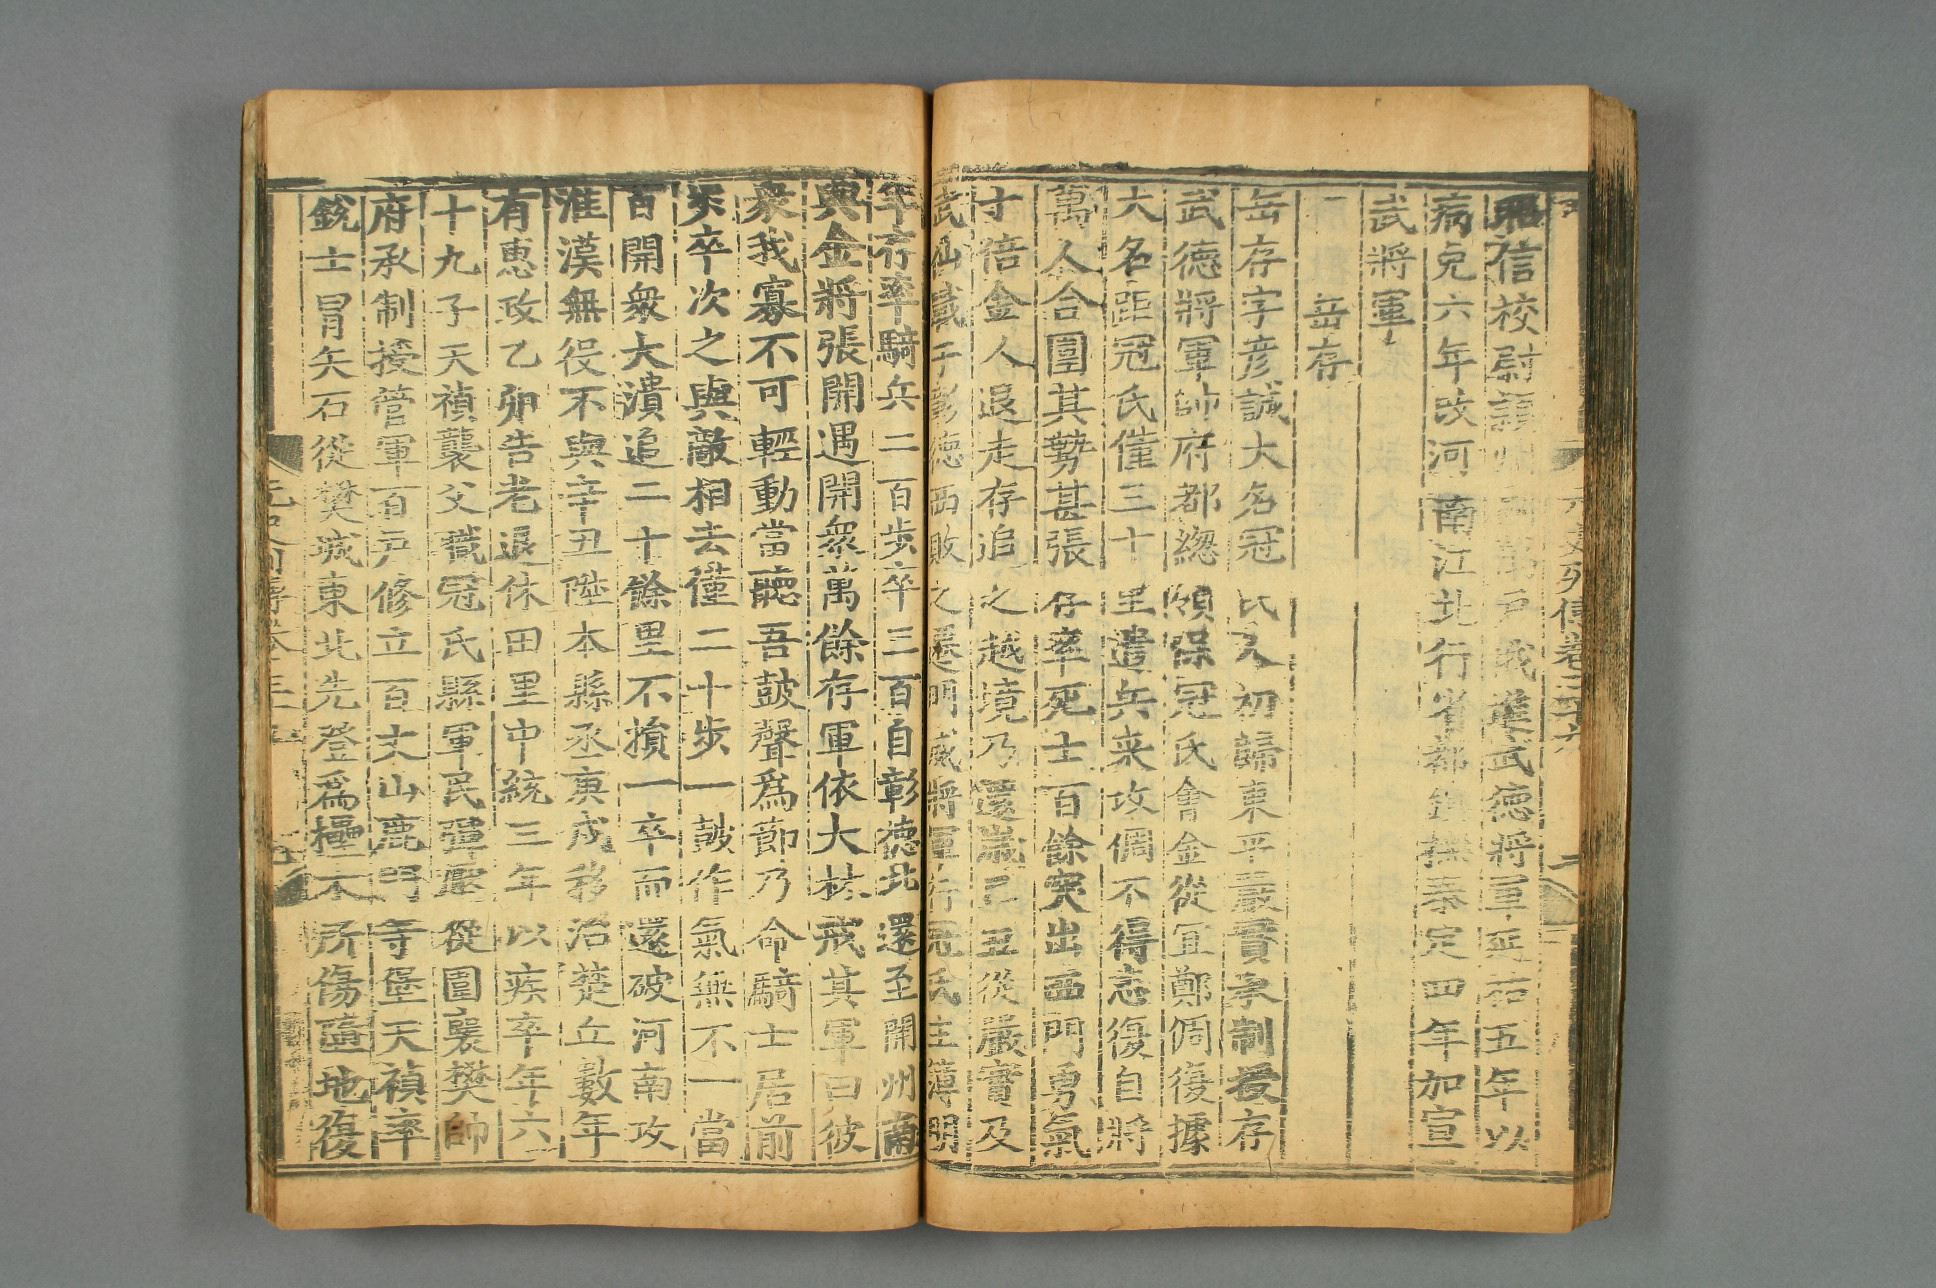 信校尉 戶 武德將軍延祐五年以
病免六年改河南江北行省都鎮撫泰定四年加宣
武將軍
岳存
岳存字彥誠大名冠氏人初歸東平嚴實承制授存
武德將軍帥府都總領保冠氏會金從宜鄭倜復據
大名距冠氏僅三十里遣兵來攻倜不得志復自將
萬人合圍其勢甚張存率死士百餘突出西門勇氣
十倍金人退走存追之越境乃還歲己丑從嚴實及
武仙戰于彰德西敗之遷明威將軍行冠氏主簿明
年存率騎兵二百步卒三百自彰德北還至開州南
與金將張開遇開衆萬餘存軍依大林戒其軍曰彼
衆我寡不可輕動當聽吾鼓聲爲節乃命騎士居前
步卒次之與敵相去僅二十步一鼓作氣無不一當
百開衆大潰追二十餘里不損一卒而還破河南攻
淮漢無役不與辛丑陞本縣丞庚戌移治楚丘數年
有惠政乙卯告老退休田里中統三年以疾卒年六
十九子天禎襲父職冠氏縣軍民彈壓從圍襄樊帥
府承制授管軍百戶修立百丈山鹿門寺堡天禎率
銳士冒矢石從樊城東北先登爲櫑木所傷墮地復